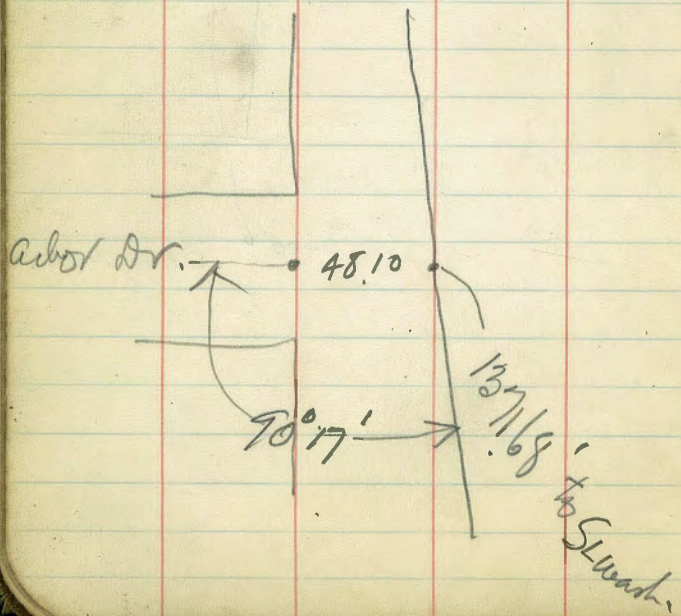 Arbor Dr. 48.10
90° 17'
137.68' to SL Wash.